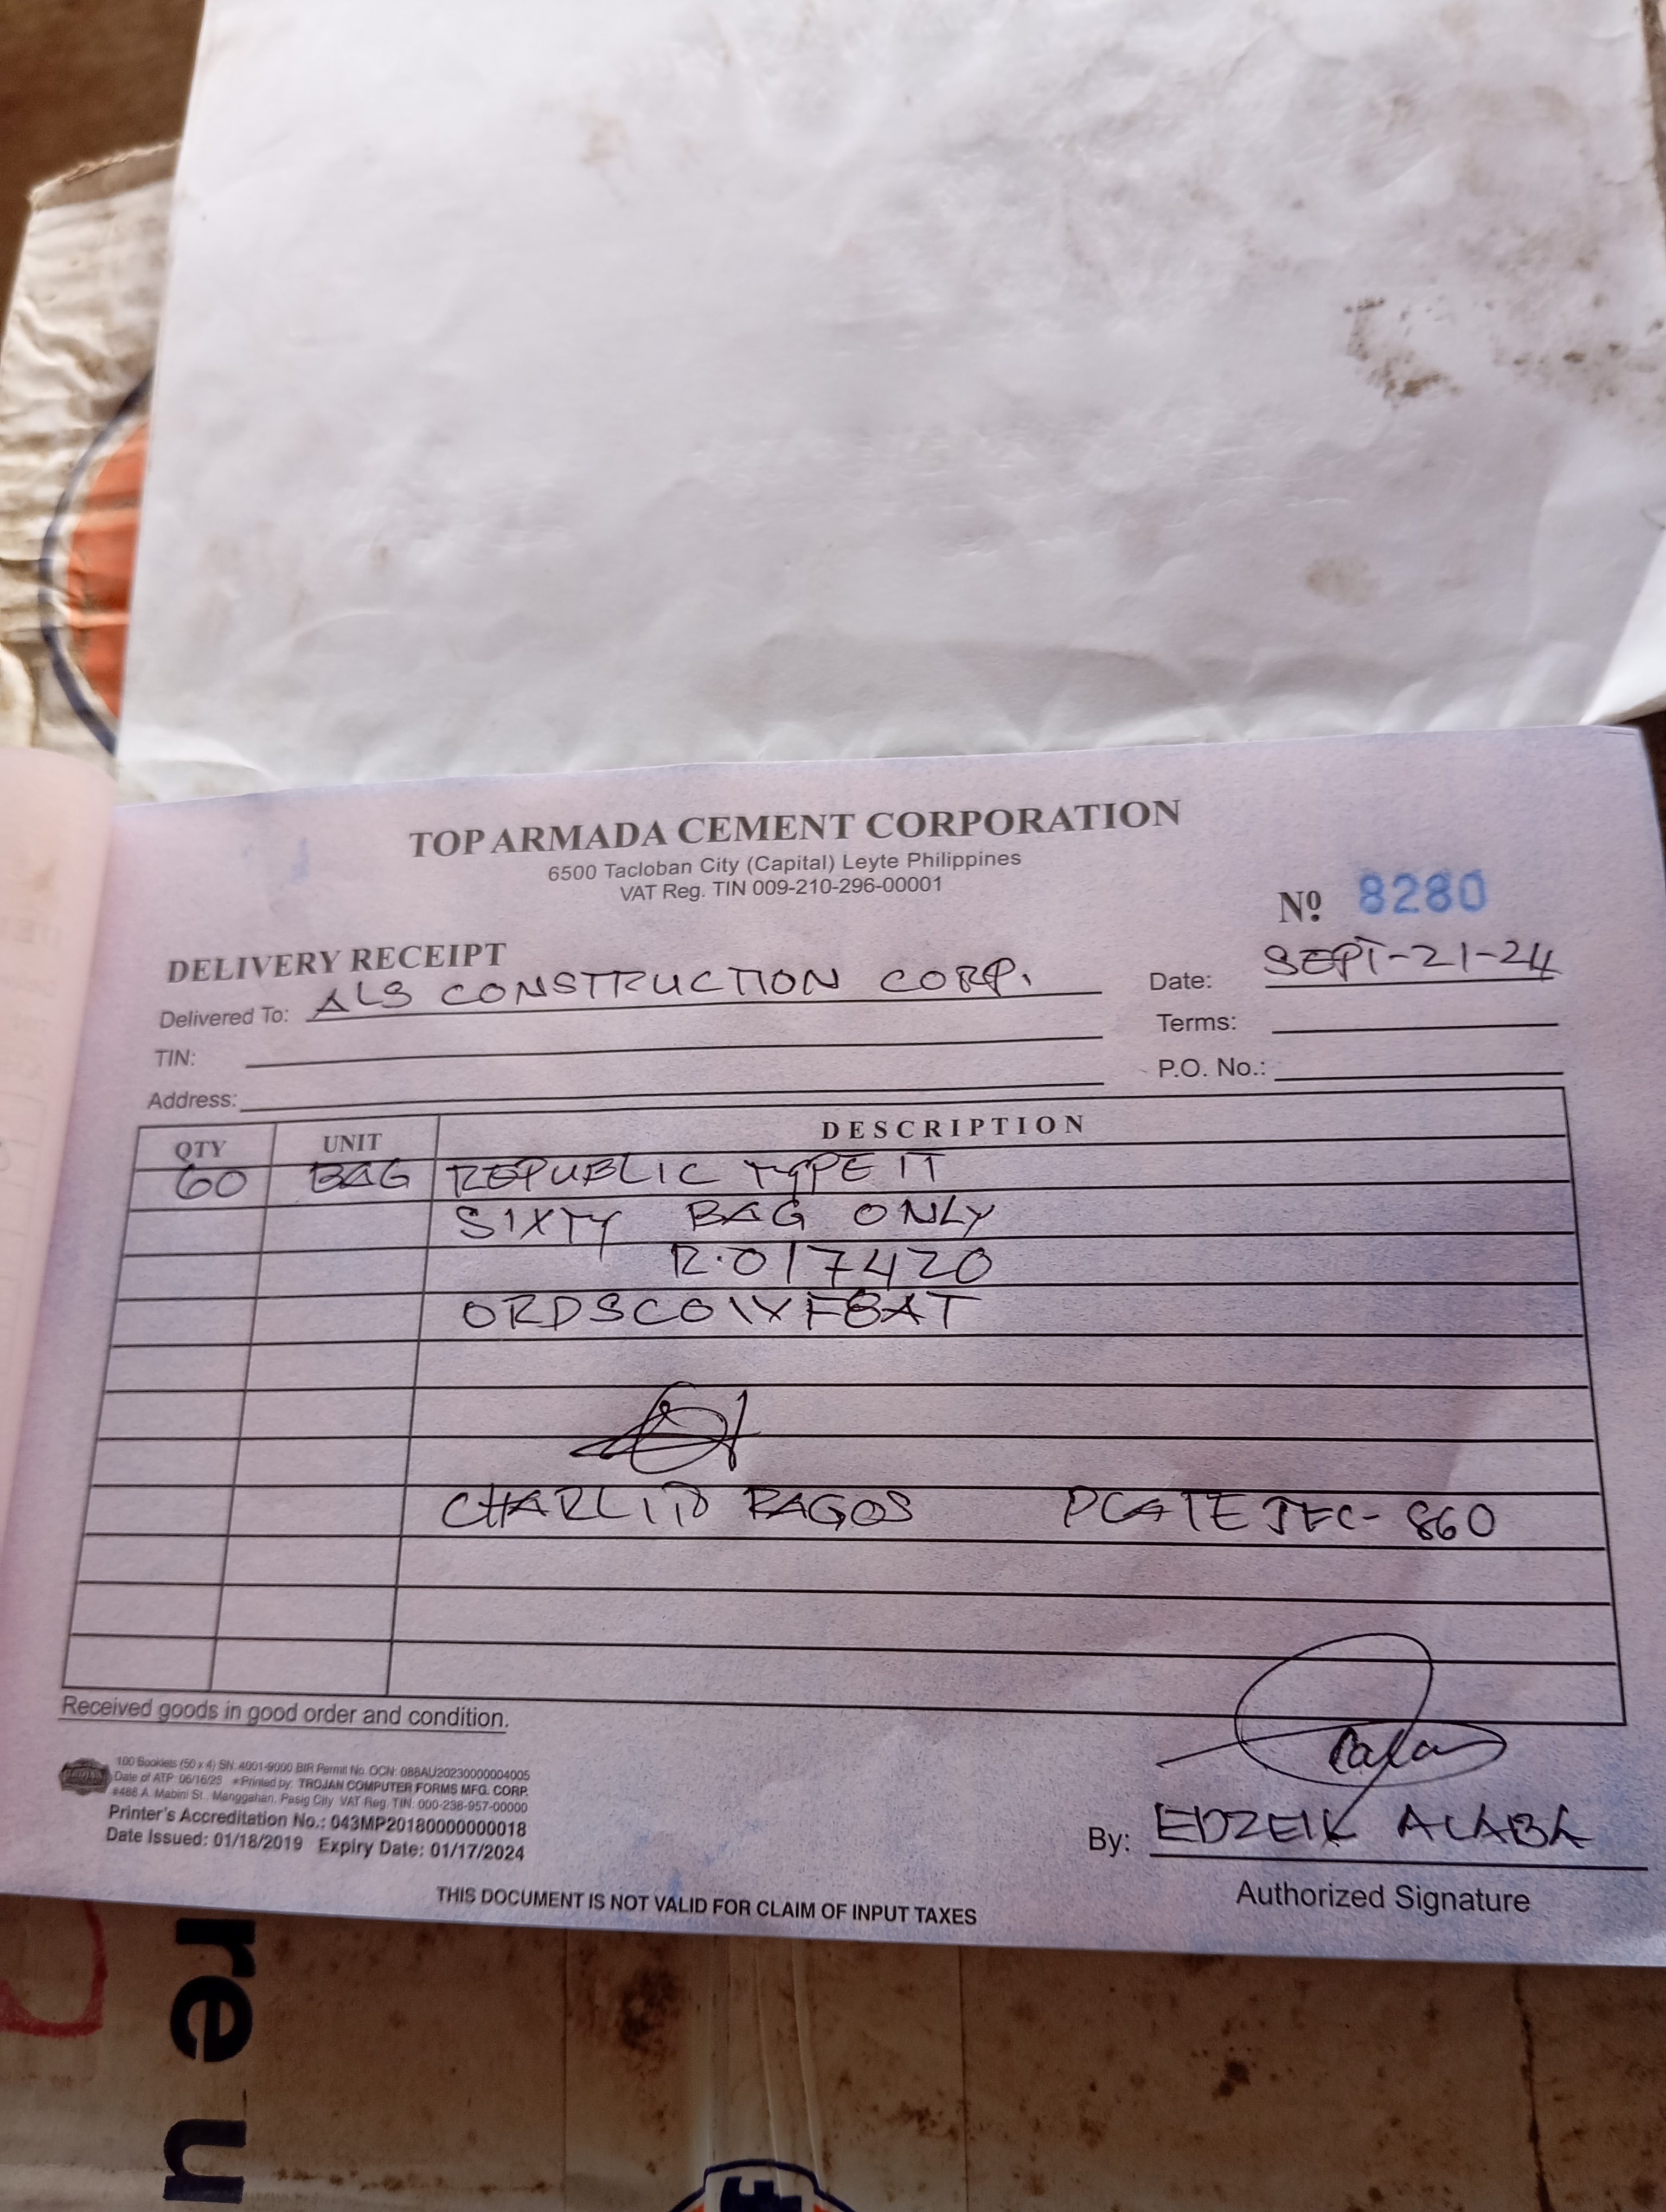 TOP ARMADA CEMENT CORPORATION
6500 Tacloban City (Capital) Leyte Philippines
VAT Reg. TIN 009-210-296-00001
Nº 8280
DELIVERY RECEIPT
Delivered To: ALS CONSTRUCTION CORP.
Date: SEPT-21-24
TIN:
Terms:
Address:
P.O. No.:
QTY UNIT DESCRIPTION
60 BAG REPUBLIC TYPE IT
SIXTY BAG ONLY
R.017420
ORDSCO1XF8AT
PLATE JFC-860
Received goods in good order and condition.
100 Booklets (50 x 4) SN: 4001-9000 BIR Permit No. OCN: 088AU20230000004005
Date of ATP: 06/16/23 *Printed by: TROJAN COMPUTER FORMS MFG. CORP.
#486 A. Mabini St., Manggahan, Pasig City VAT Reg. TIN: 000-238-957-00000
Printer's Accreditation No.: 043MP20180000000018
Date Issued: 01/18/2019 Expiry Date: 01/17/2024
By: EDZEIK ALABA
Authorized Signature
THIS DOCUMENT IS NOT VALID FOR CLAIM OF INPUT TAXES
re u